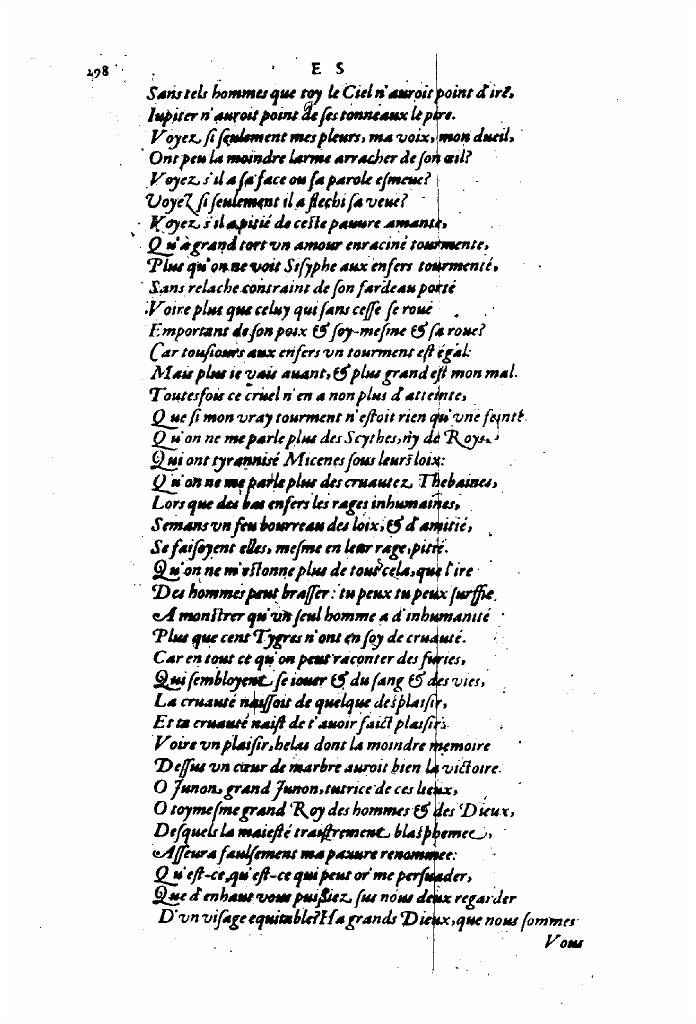 298 E S
Sans tels hommes que toy le Ciel n'auroit point d'ire,
Iupiter n'auroit point de ses tonneaux le pire.
Voyez, si seulement mes pleurs, ma voix, mon dueil,
Ont peu la moindre larme arracher de son œil?
Voyez s'il a sa face ou sa parole esmeue?
Voyez si seulement il a flechi sa veue?
Voyez s'il a pitié de ceste pauure amante,
Qu'à grand tort vn amour enraciné tourmente,
Plus qu'on ne voit Sisyphe aux enfers tourmenté,
Sans relache contraint de son fardeau porté
Voire plus que celuy qui sans cesse se roue
Emportant de son poix & soy-mesme & sa roue?
Car tousiours aux enfers vn tourment est égal:
Mais plus ie vais auant, & plus grand est mon mal.
Toutesfois ce cruel n'en a non plus d'atteinte,
Que si mon vray tourment n'estoit rien qu'vne feinte.
Qu'on ne me parle plus des Scythes, ny de Roys,
Qui ont tyrannisé Micenes sous leurs loix:
Qu'on ne me parle plus des cruautez Thebaines,
Lors que des bas enfers les rages inhumaines,
Semans vn feu bourreau des loix, & d'amitié,
Se faisoyent elles, mesme en leur rage, pitié.
Qu'on ne m'estonne plus de tout cela, que l'ire
Des hommes peut brasser: tu peux tu peux suffire
A monstrer qu'vn seul homme a d'inhumanité
Plus que cent Tygres n'ont en soy de cruauté.
Car en tout ce qu'on peut raconter des furies,
Qui sembloyent se iouer & du sang & des vies,
La cruauté naissoit de quelque desplaisir,
Et ta cruauté naist de t'auoir faict plaisir:
Voire vn plaisir, helas dont la moindre memoire
Dessus vn cœur de marbre auroit bien la victoire.
O Junon, grand Junon, tutrice de ces lieux,
O toymesme grand Roy des hommes & des Dieux,
Desquels la maiesté traistrement blasphemee,
Asseura faulsement ma pauure renommee:
Qu'est-ce, qu'est-ce qui peut or' me persuader,
Que d'enhaut vous puissiez sus nous deux regarder
D'vn visage equitable? Ha grands Dieux, que nous sommes
Vous